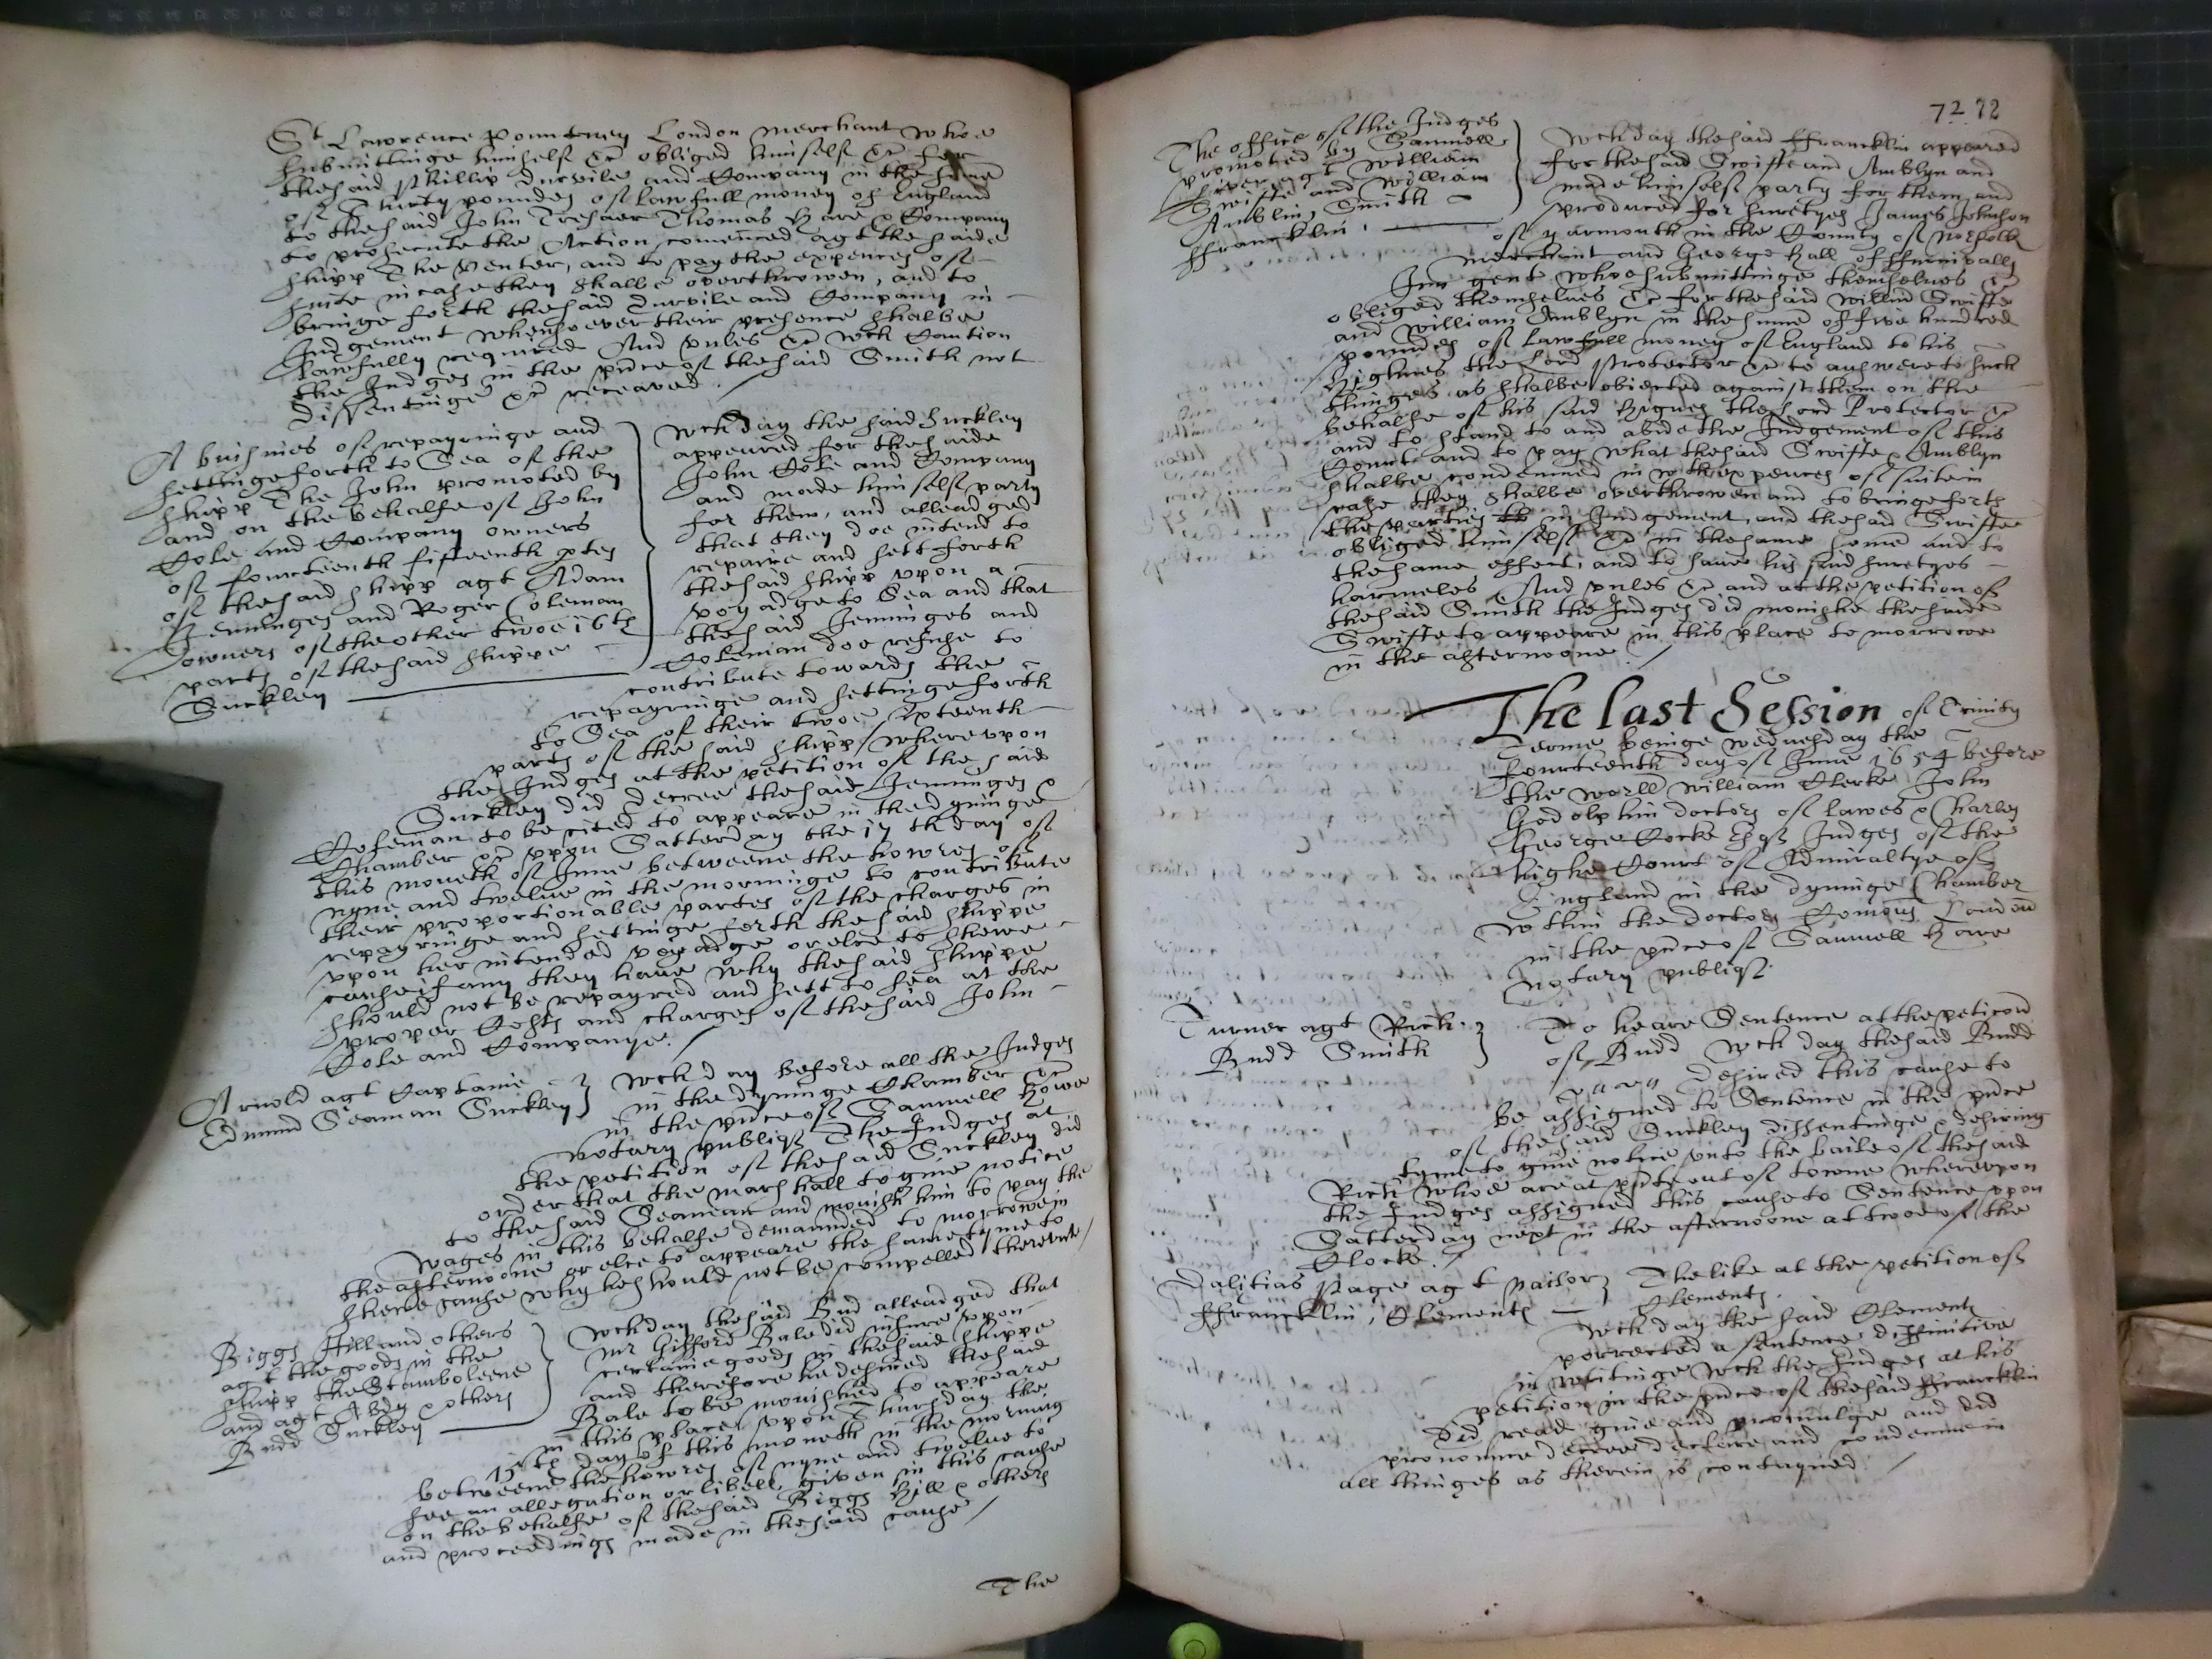 St Lawrence Pountney London merchant whoe
submittinge himselfe &c obliged himselfe &c for
the said Phillip Durvile and Company in the summe
of Thirty poundes of lawfull money of England
to the said John Treher Thomas Hare & Company
to prosecute the Action comenced agt the saide
shipp The Venter, and to pay the expences of
suite in case they shalbe overthrowen, and to
bringe forth the said Durvile and Company in
Judgement whensoever their presence shalbe
lawfully required And unles &c wch Caution
the Judges in the pnce of the said Smith not
dissentinge &c receaved /
A buisines of repayringe and
settinge forth to Sea of the
shipp The John promoted by
and on the behalfe of John
Cole and Company owners
of fourteenth sixteenth ptes
of the said shipp agt Adam
Jenninges and Roger Coleman
owners of the other twoe 16th
parts of the said shippe
Suckley
wch day the said Suckley
appeared for the saide
John Cole and Company
and made himselfe party
for them, and alleadged
that they doe intend to
repaire and sett forth
the said shipp upon a
voyadge to Sea and that
the said Jenninges and
Coleman doe refuse to
contribute towards the
repayringe and settinge forth
to Sea of their twoe sixteenth
parts of the said shipp, whereupon
the Judges at the petition of the said
Suckley did decree the said Jenninges &
Coleman to be cited to appeare in the dyninge
Chamber &c upon Satterday the 17th day of
this moneth of June betweene the howres of
nyne and twelve in the morninge to contribute
their proportionable partes of the charges in
repayringe and settinge forth the said shippe
upon her intended voyadge or else to shewe
cause if any they have why the said shippe
should not be repayred and sett to sea at the
proper Costs and charges of the said John
Cole and Companye. /
Arnold agt Captaine
Edmund Seaman Suckley
wch day before all the Judges
in the dyninge Chamber &c
in the pnce of Samuell Howe
notary publiq The Judges at
the petition of the said Suckley did
order that the marshall to give notice
to the said Seaman and monish him to pay the
wages in this behalfe demaunded to morrowe in
the afternoone or else to appeare the same tyme to
shewe cause why he should not be compelled thereunto /
Biggs Hill and others
agt the goods in the
shipp the Stamboleene
and agt Abdy & others
Budd Suckley
wch day the said Bud alleadged that
mr Gifford Bale did insure upon
certaine goods in the said shippe
and therefore he desired the said
Bale to be monished to appeare
in this place, upon Thursday the
15th day of this moneth in the morning
betweene the howres of nyne and twelve to
see an allegation or libell given in this cause
on the behalfe of the said Biggs Hill & others
and proceedings made in the said cause /
The
72 72
The office of the Judges
promoted by Samuell
agt William
Swifte and William
Amblin, Smith
ffrancklin,
wch day the said ffrancklin appeared
for the said Swifte and Amblyn and
made himselfe party for them, and
produced for suretyes James Johnson
of yarmouth in the County of Norfolk
merchant and George Hall of ffurnivalls
Inn gent whoe submittinge themselves &c
obliged themselves &c for the said Willm Swifte
and William Amblyn in the summe of five hundred
poundes of lawfull money of England to his
Highnes the Lord Protector &c to answere to such
thinges as shalbe obiected against them on the
behalfe of his said Highnes the Lord Protector &c
and to stand to and abide the Judgement of this
Court and to pay what the said Swifte & Amblyn
shalbe condemned in wth expences of suite in
case they shalbe overthrowen and to bringe forth
the parties in Judgement, and the said Swifte
obliged himselfe &c in the same somme and to
the same effect, and to save his said suretyes
harmeles And unles &c and at the petition of
the said Smith the Judges did monishe the saide
Swifte to appeare in this place to morrowe
in the afternoone /
The last Session of Trinity
Terme beinge wednesday the
fourteenth day of June 1654 before
the worll William Clerke John
Godolphin doctors of lawes & Charles
George Cocke Esqr Judges of the
highe Court of Admiraltye of
England in the dyninge Chamber
wthin the doctors Comons London
in the pnce of Samuell Howe
notary publiq.
Turner agt Rich:
Budd Smith
To heare Sentence at the peticon
of Budd wch day the said Budd
desired this cause to
be assigned to Sentence in the pnce
of the said Suckley dissentinge & desiring
tyme to give notice unto the baile of the said
Rich whoe are at pnte out of towne whereupon
the Judges assigned this cause to Sentence upon
Satterday next in the afternoone at twoe of the
Clocke. /
Dalitias Page agt Nailor
ffrancklin, Clements
The like at the petition of
Clements.
wch day the said Clements
porrected a sentence diffinitive
in writinge wch the Judges at his
petition in the pnce of the said ffrancklin
did read give and promulge and did
pronounce decree declare and condemne in
all thinges as therein is contayned /